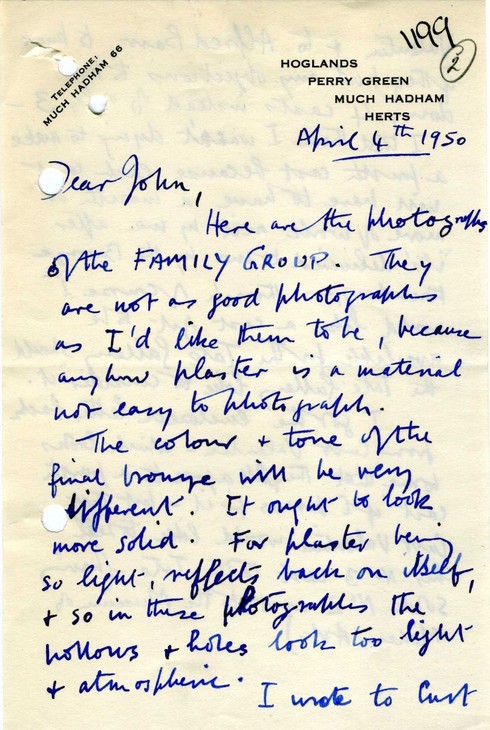 1199
2
TELEPHONE:
MUCH HADHAM 66
HOGLANDS
PERRY GREEN
MUCH HADHAM
HERTS
April 4th 1950
Dear John,
Here are the photographs
of the FAMILY GROUP. They
are not as good photographs
as I'd like them to be, because
anyhow plaster is a material
not easy to photograph.
The colour + tone of the
final bronze will be very
different. It ought to look
more solid. For plaster being
so light, reflects back on itself,
+ so in these photographs the
hollows + holes look too light
+ atmospheric.
I wrote to Curt